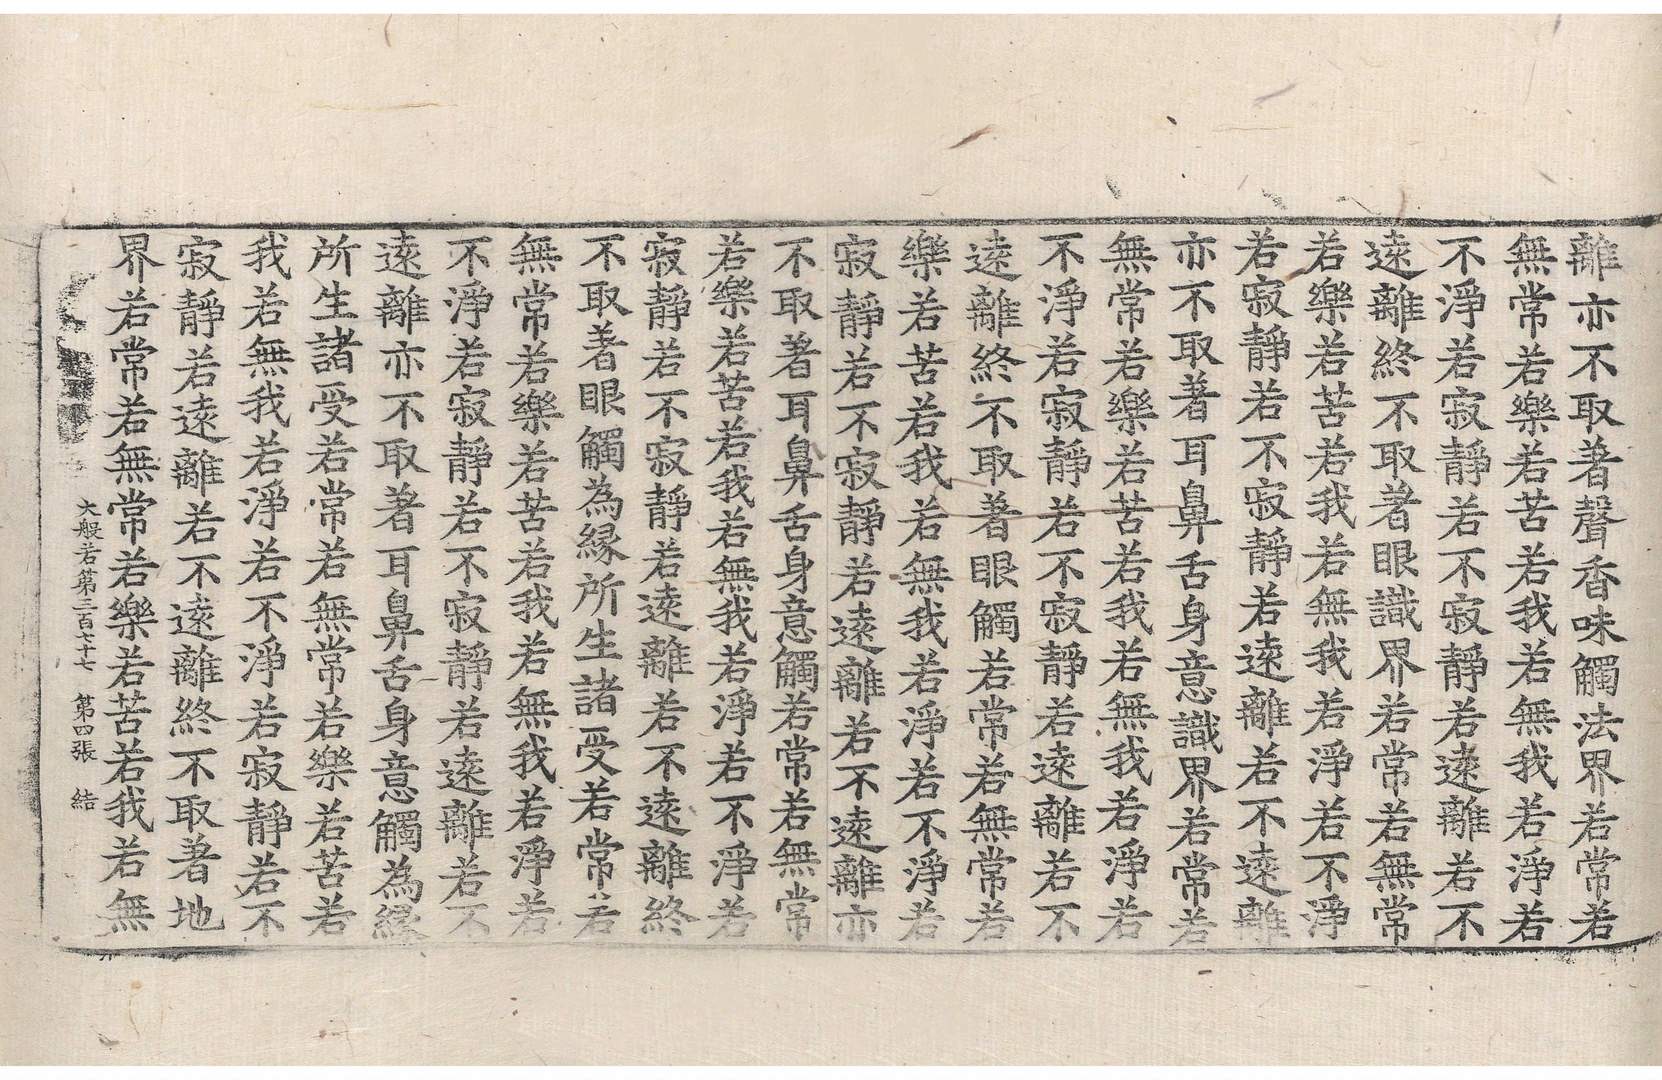 離亦不取著聲香味觸法界若常若
無常若樂若苦若我若無我若淨若
不淨若寂靜若不寂靜若遠離若不
遠離終不取著眼識界若常若無常
若樂若苦若我若無我若淨若不淨
若寂靜若不寂靜若遠離若不遠離
亦不取著耳鼻舌身意識界若常若
無常若樂若苦若我若無我若淨若
不淨若寂靜若不寂靜若遠離若不
遠離終不取著眼觸若常若無常若
樂若苦若我若無我若淨若不淨若
寂靜若不寂靜若遠離若不遠離亦
不取著耳鼻舌身意觸若常若無常
若樂若苦若我若無我若淨若不淨若
寂靜若不寂靜若遠離若不遠離終
不取著眼觸為緣所生諸受若常若
無常若樂若苦若我若無我若淨若
不淨若寂靜若不寂靜若遠離若不
遠離亦不取著耳鼻舌身意觸為緣
所生諸受若常若無常若樂若苦若
我若無我若淨若不淨若寂靜若不
寂靜若遠離若不遠離終不取著地
界若常若無常若樂若苦若我若無
大般若第三百七十七 第四張 結